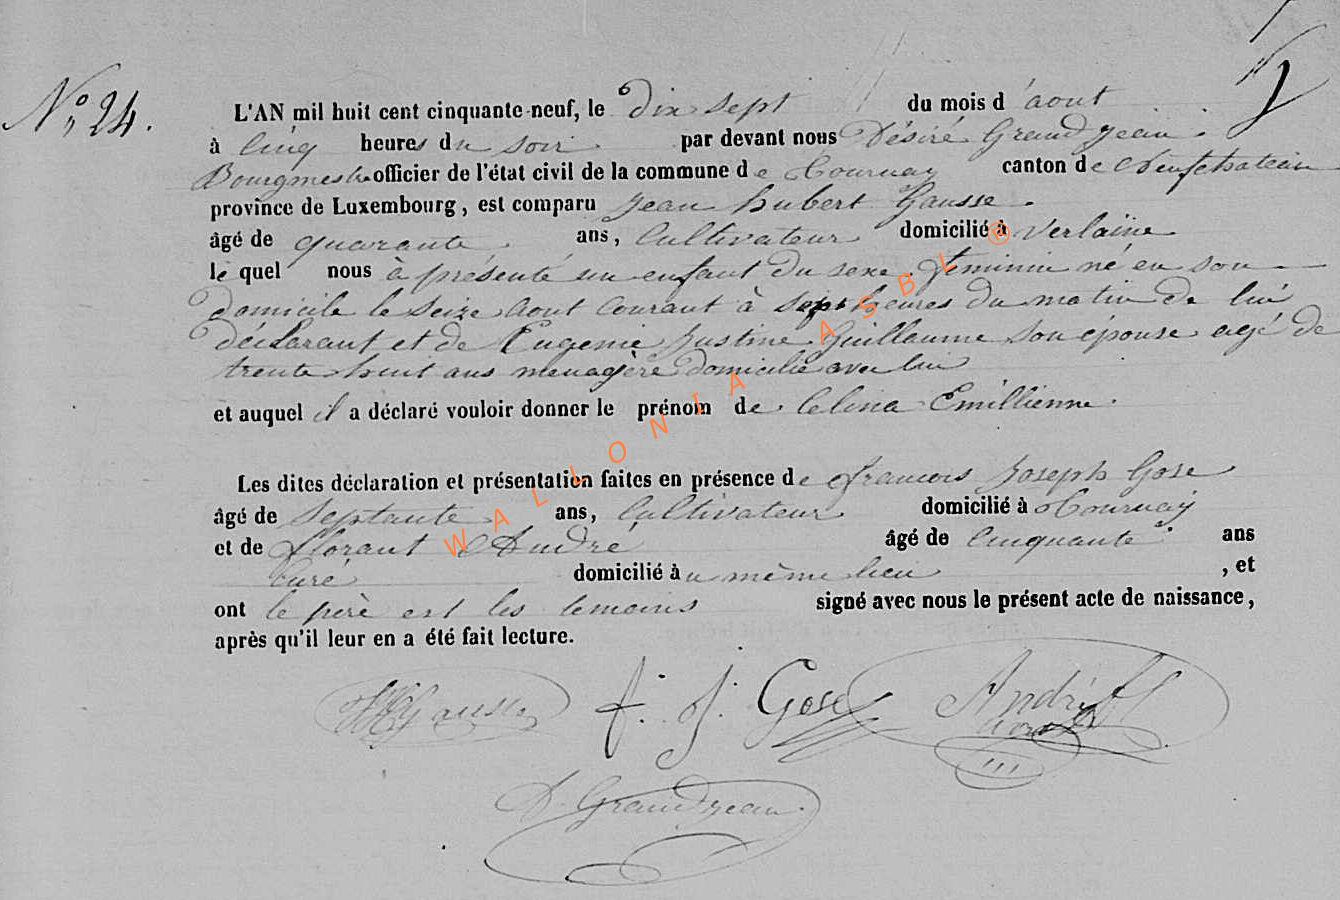 N° 24.
L'AN mil huit cent cinquante-neuf, le dix sept du mois d'aout
à cinq heures du soir par devant nous Désiré Grandjean
Bourgmestre officier de l'état civil de la commune de Tournay canton de Neufchateau
province de Luxembourg, est comparu Jean hubert Gausse.
âgé de quarante ans, Cultivateur domicilié à Verlaine
le quel nous à présenté un enfant du sexe féminin né en son
domicile le seize aout courant à sept heures du matin de lui
déclarant et de Eugenie Justine Guillaume son épouse agé de
trente huit ans menagère domicilié avec lui
et auquel il a déclaré vouloir donner le prénom de Celina Emillienne.
Les dites déclaration et présentation faites en présence de francois Joseph Gose
âgé de Septante ans, Cultivateur domicilié à Tournay
et de florant André âgé de Cinquante ans
Curé domicilié àu même lieu, et
ont le père est les temoins signé avec nous le présent acte de naissance,
après qu'il leur en a été fait lecture.
JH Gausse f. J. Gose André
D. Grandjean
WALLONIA ASBL ®